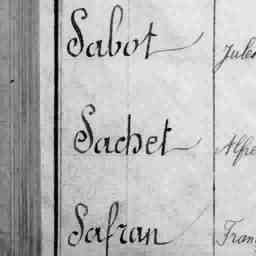 Sabot Jules
Sachet Alfre
Safran Fran